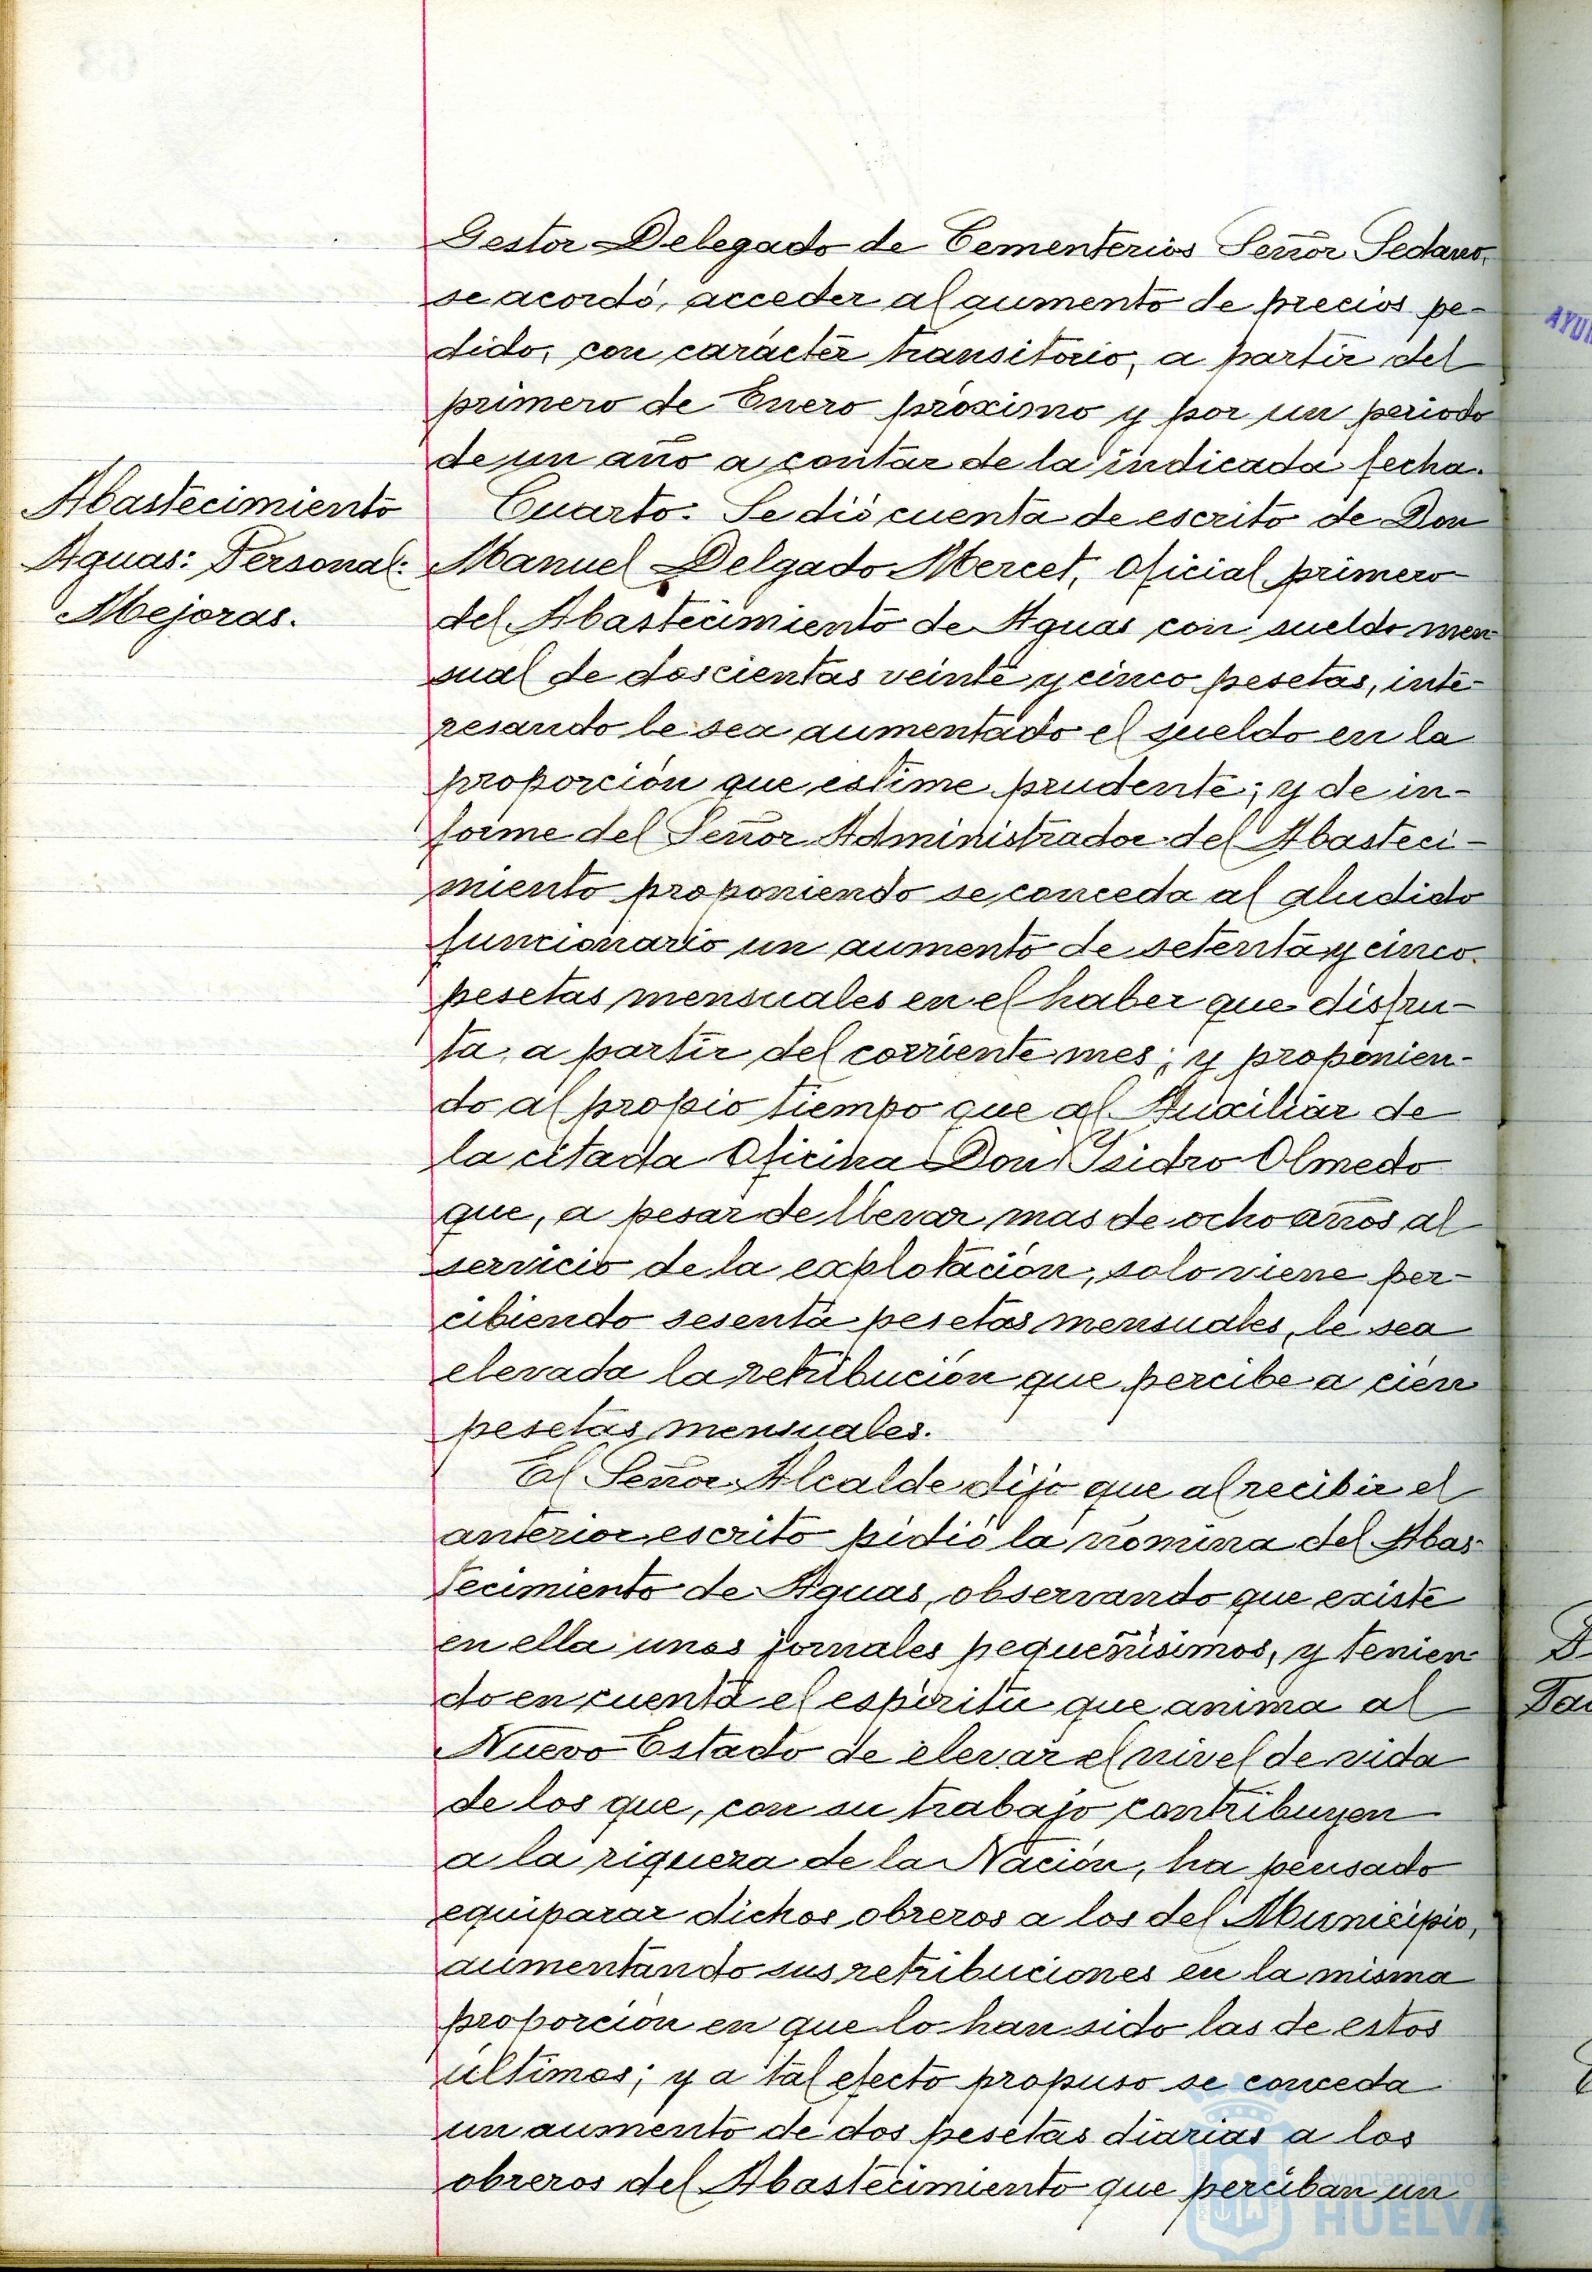 Gestor Delegado de Cementerios Señor Sedano,
se acordó, acceder al aumento de precios pe-
dido, con carácter transitorio, a partir del
primero de Enero próximo y por un periodo
de un año a contar de la indicada fecha.
Abastecimiento
Aguas: Personal:
Mejoras.
Cuarto: Se dió cuenta de escrito de Don
Manuel Delgado Mercet, Oficial primero
del Abastecimiento de Aguas con sueldo men-
sual de doscientas veinte y cinco pesetas, inte-
resando le sea aumentado el sueldo en la
proporción que estime prudente; y de in-
forme del Señor Administrador del Abasteci-
miento proponiendo se conceda al aludido
funcionario un aumento de setenta y cinco
pesetas mensuales en el haber que disfru-
ta, a partir del corriente mes; y proponien-
do al propio tiempo que al Auxiliar de
la citada Oficina Don Isidro Olmedo
que, a pesar de llevar mas de ocho años al
servicio de la explotación, solo viene per-
cibiendo sesenta pesetas mensuales, le sea
elevada la retribución que percibe a cien
pesetas mensuales.
El Señor Alcalde dijo que al recibir el
anterior escrito pidió la nómina del Abas-
tecimiento de Aguas, observando que existe
en ella unos jornales pequeñísimos, y tenien
do en cuenta el espíritu que anima al
Nuevo Estado de elevar el nivel de vida
de los que, con su trabajo contribuyen
a la riqueza de la Nación, ha pensado
equiparar dichos obreros a los del Municipio,
aumentando sus retribuciones en la misma
proporción en que lo han sido las de estos
últimos; y a tal efecto propuso se conceda
un aumento de dos pesetas diarias a los
obreros del Abastecimiento que perciban un
Ayuntamiento de
HUELVA